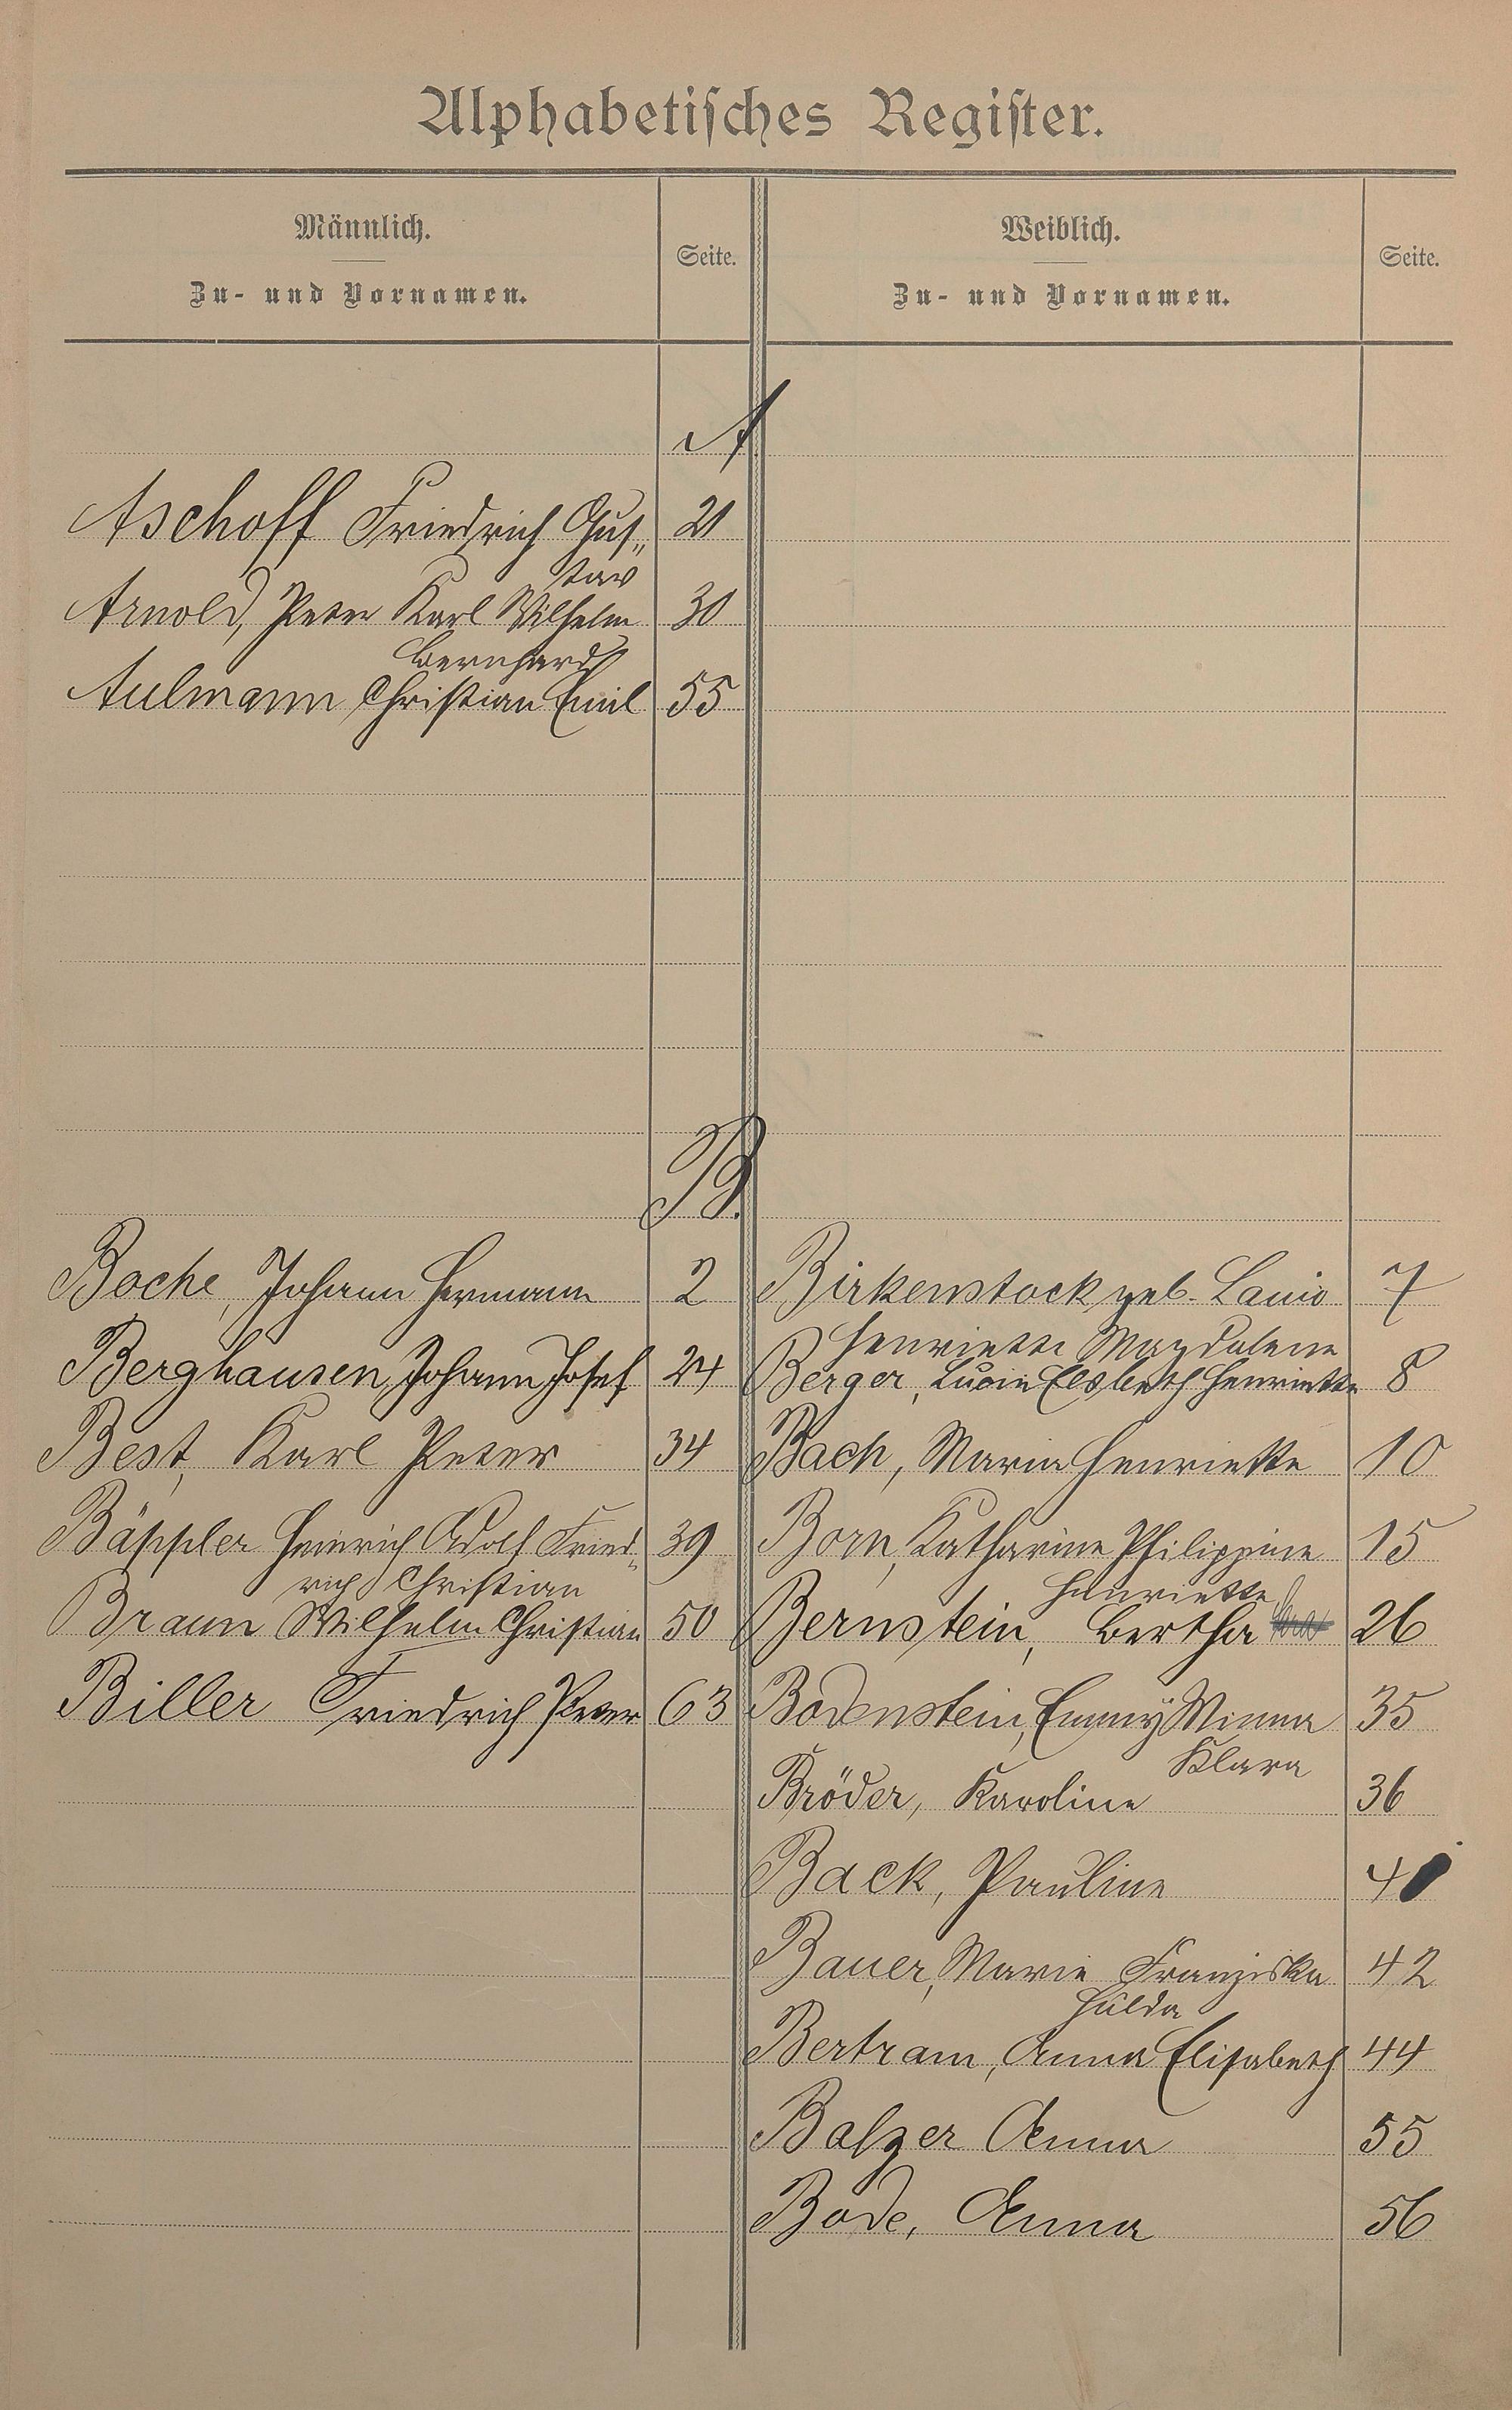 Alphabetisches Register.
Männlich.
Zu- und Vornamen.
Seite.
Weiblich.
Zu- und Vornamen.
Seite.
A
Aschoff Friedrich Gus„ 21
tav
Arnold, Peter Karl Wilhelm 30
Bernhard
Aulmann Christian Emil 55
B.
Boche, Johann Hermann 2
Berghausen, Johann Josef 24
Best, Karl Peter 34
Bäppler Heinrich Adolf Fried„ 39
rich Christian
Braun Wilhelm Christian 50
Biller Friedrich Peter 63
Birkenstock geb. Lanio 7
Henriette Magdalene
Berger, Lucie Elsbeth Henriette 8
Bach, Maria Henriette 10
Born, Katharine Philippine 15
Henriette
Bernstein, Bertha 26
Bodenstein, Emmy Minna 35
Klara
Bröder, Karoline 36
Back, Pauline 40
Bauer, Marie Franziska 42
Hulda
Bertram, Anna Elisabeth 44
Balzer Anna 55
Bode, Anna 56